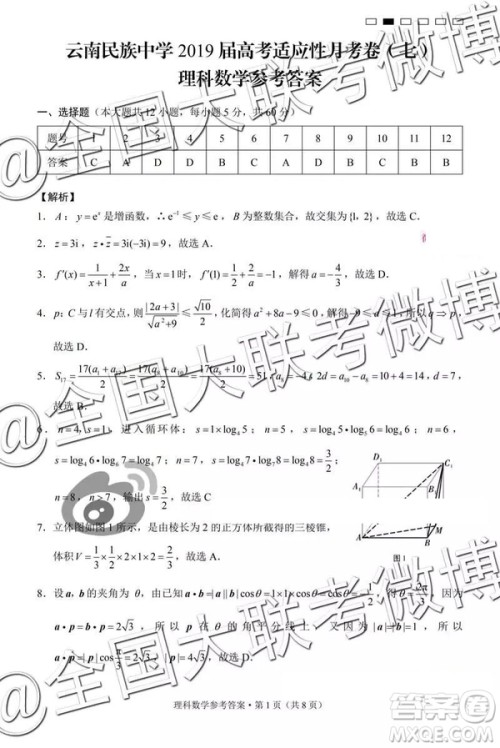 云南民族中学 2019 届高考适应性月考卷（七）
理科数学参考答案
一、选择题（本大题共12小题，每小题5分，共60分）
题号 1 2 3 4 5 6 7 8 9 10 11 12
答案 C A D A B C A D A
【解析】
1．A：y=eˣ 是增函数，∴e⁻¹≤y≤e，B 为整数集合，故交集为{1，2}，故选 C．
2．z=3i，z·z̄=3i(−3i)=9，故选 A．
3．f′(x)=1/(x+1)+2x/a，当 x=1 时，f′(1)=1/2+2/a=−1，解得 a=−4/3，故选 D．
4．p：C 与 l 有交点，则 |2a+3|/√(a²+9)≤√10/2，化简得 a²+8a−9≤0，解得−9≤a≤1，所以 a⇒p，
故选 A．
5．S₁₇=17(a₁+a₁₇)/2=17(a₈+a₁₀)/2=51，a₈=−4，2d=a₁₀−a₈=10+4=14，d=7，
故选 B．
6．n=4，s=1，进入循环体：s=1×log₄5；n=5，s=log₄5·log₅6；n=6，
s=log₄6·log₆7=log₄7；n=7，s=log₄7·log₇8=log₄8=3/2；
n=8，n>7，输出 s=3/2，故选 C
7．立体图如图 1 所示，是由棱长为 2 的正方体所截到的三棱锥，
体积 V=1/3×1/2×2×1×2=2/3，故选 A．
D₁
C₁
M
图 1
8．设 a，b 的夹角为 θ，由已知 a·b=|a||b|cosθ=1×1×cosθ=−1/2，cosθ=，θ=2π/3，因为
a·p=b·p=2√3，所以 p 在的角平分线上，又因为 |a|=|b|=1，所以
a·p=|p|cosπ/3=2√3，
理科数学参考答案·第 1 页（共 8 页）
@全国大联考微博
@全国大联考微博